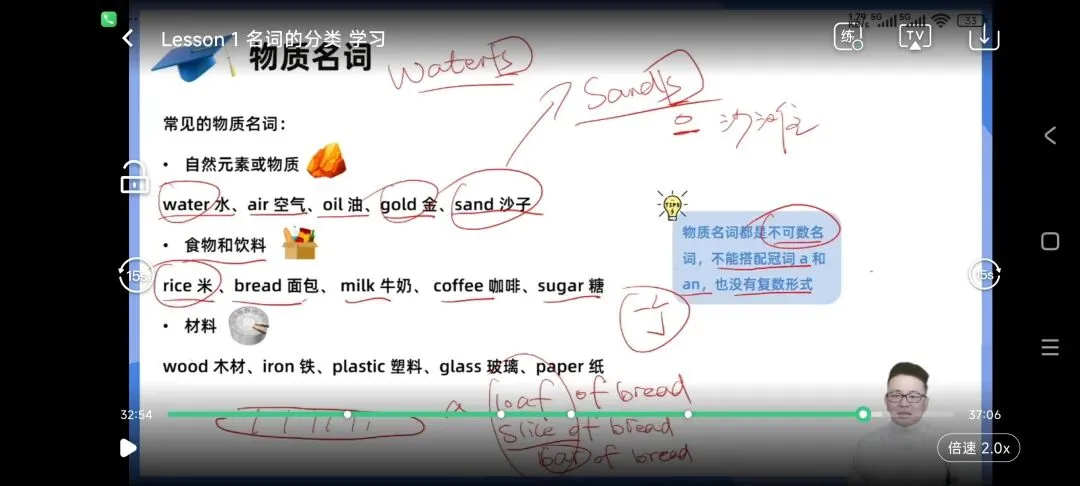 1.79 KB/s 5G 5G 33
Lesson 1 名词的分类 学习
练 TV
物质名词
Water s
Sand s
沙滩
常见的物质名词：
• 自然元素或物质
water 水、air 空气、oil 油、gold 金、sand 沙子
TIPS
物质名词都是不可数名
词，不能搭配冠词 a 和
an，也没有复数形式
• 食物和饮料
15s
15s
rice 米、bread 面包、 milk 牛奶、 coffee 咖啡、sugar 糖
• 材料
wood 木材、iron 铁、plastic 塑料、glass 玻璃、paper 纸
a loaf of bread
32:54
37:06
slice of bread
bar of bread
倍速 2.0x